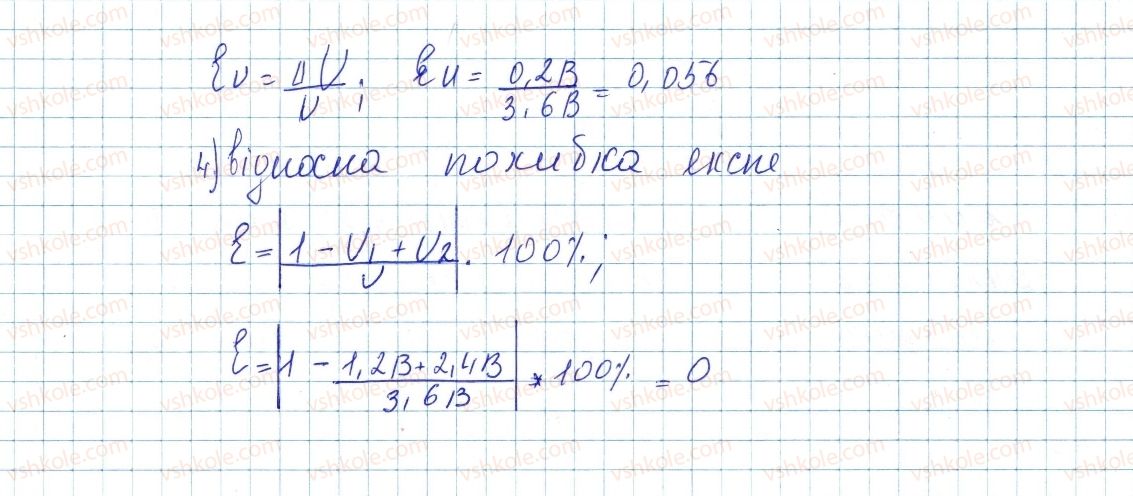 εU = ΔU/U; εU = 0,2В/3,6В = 0,056
4) відносна похибка експе
ε = |1 - U1 + U2/U| · 100%;
ε = |1 - 1,2В + 2,4В/3,6В| * 100% = 0